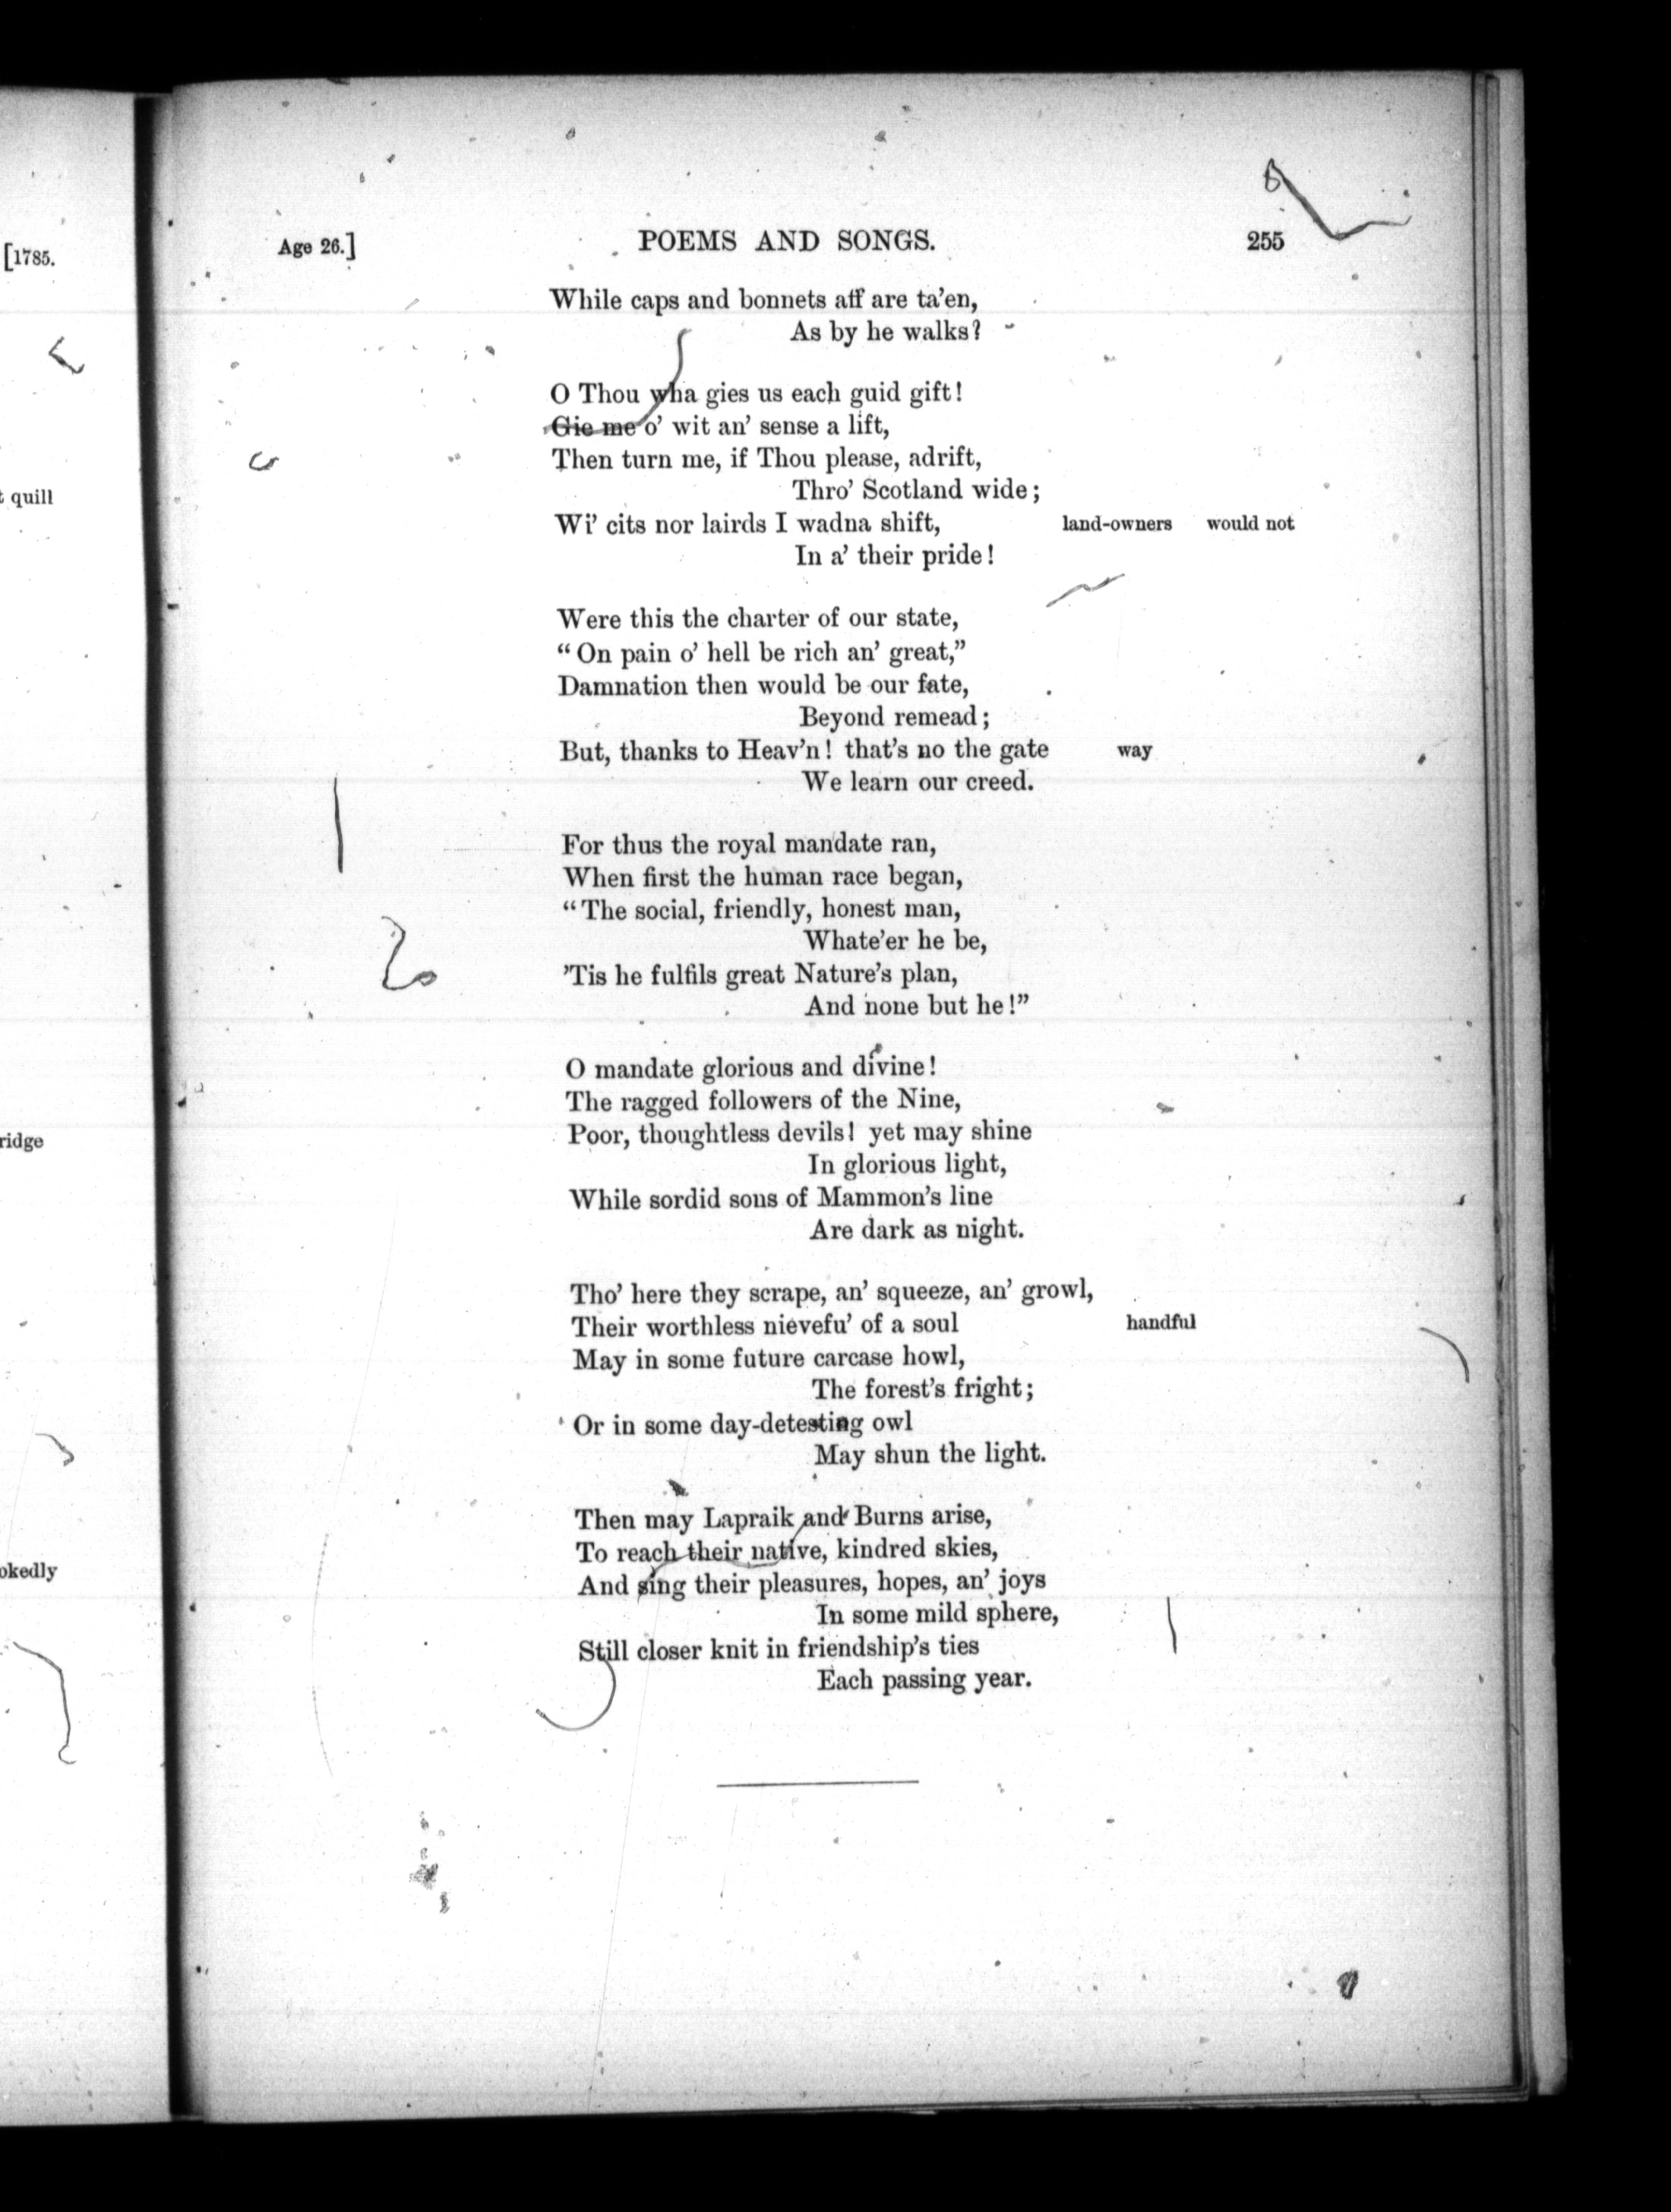 [1785.
quill
ridge
okedly
Age 26.] POEMS AND SONGS. 255
While caps and bonnets aff are ta'en,
As by he walks?
O Thou wha gies us each guid gift!
Gie me o' wit an' sense a lift,
Then turn me, if Thou please, adrift,
Thro' Scotland wide;
Wi' cits nor lairds I wadna shift, land-owners would not
In a' their pride!
Were this the charter of our state,
"On pain o' hell be rich an' great,"
Damnation then would be our fate,
Beyond remead;
But, thanks to Heav'n! that's no the gate way
We learn our creed.
For thus the royal mandate ran,
When first the human race began,
"The social, friendly, honest man,
Whate'er he be,
'Tis he fulfils great Nature's plan,
And none but he!"
O mandate glorious and divine!
The ragged followers of the Nine,
Poor, thoughtless devils! yet may shine
In glorious light,
While sordid sons of Mammon's line
Are dark as night.
Tho' here they scrape, an' squeeze, an' growl,
Their worthless nievefu' of a soul handful
May in some future carcase howl,
The forest's fright;
Or in some day-detesting owl
May shun the light.
Then may Lapraik and Burns arise,
To reach their native, kindred skies,
And sing their pleasures, hopes, an' joys
In some mild sphere,
Still closer knit in friendship's ties
Each passing year.